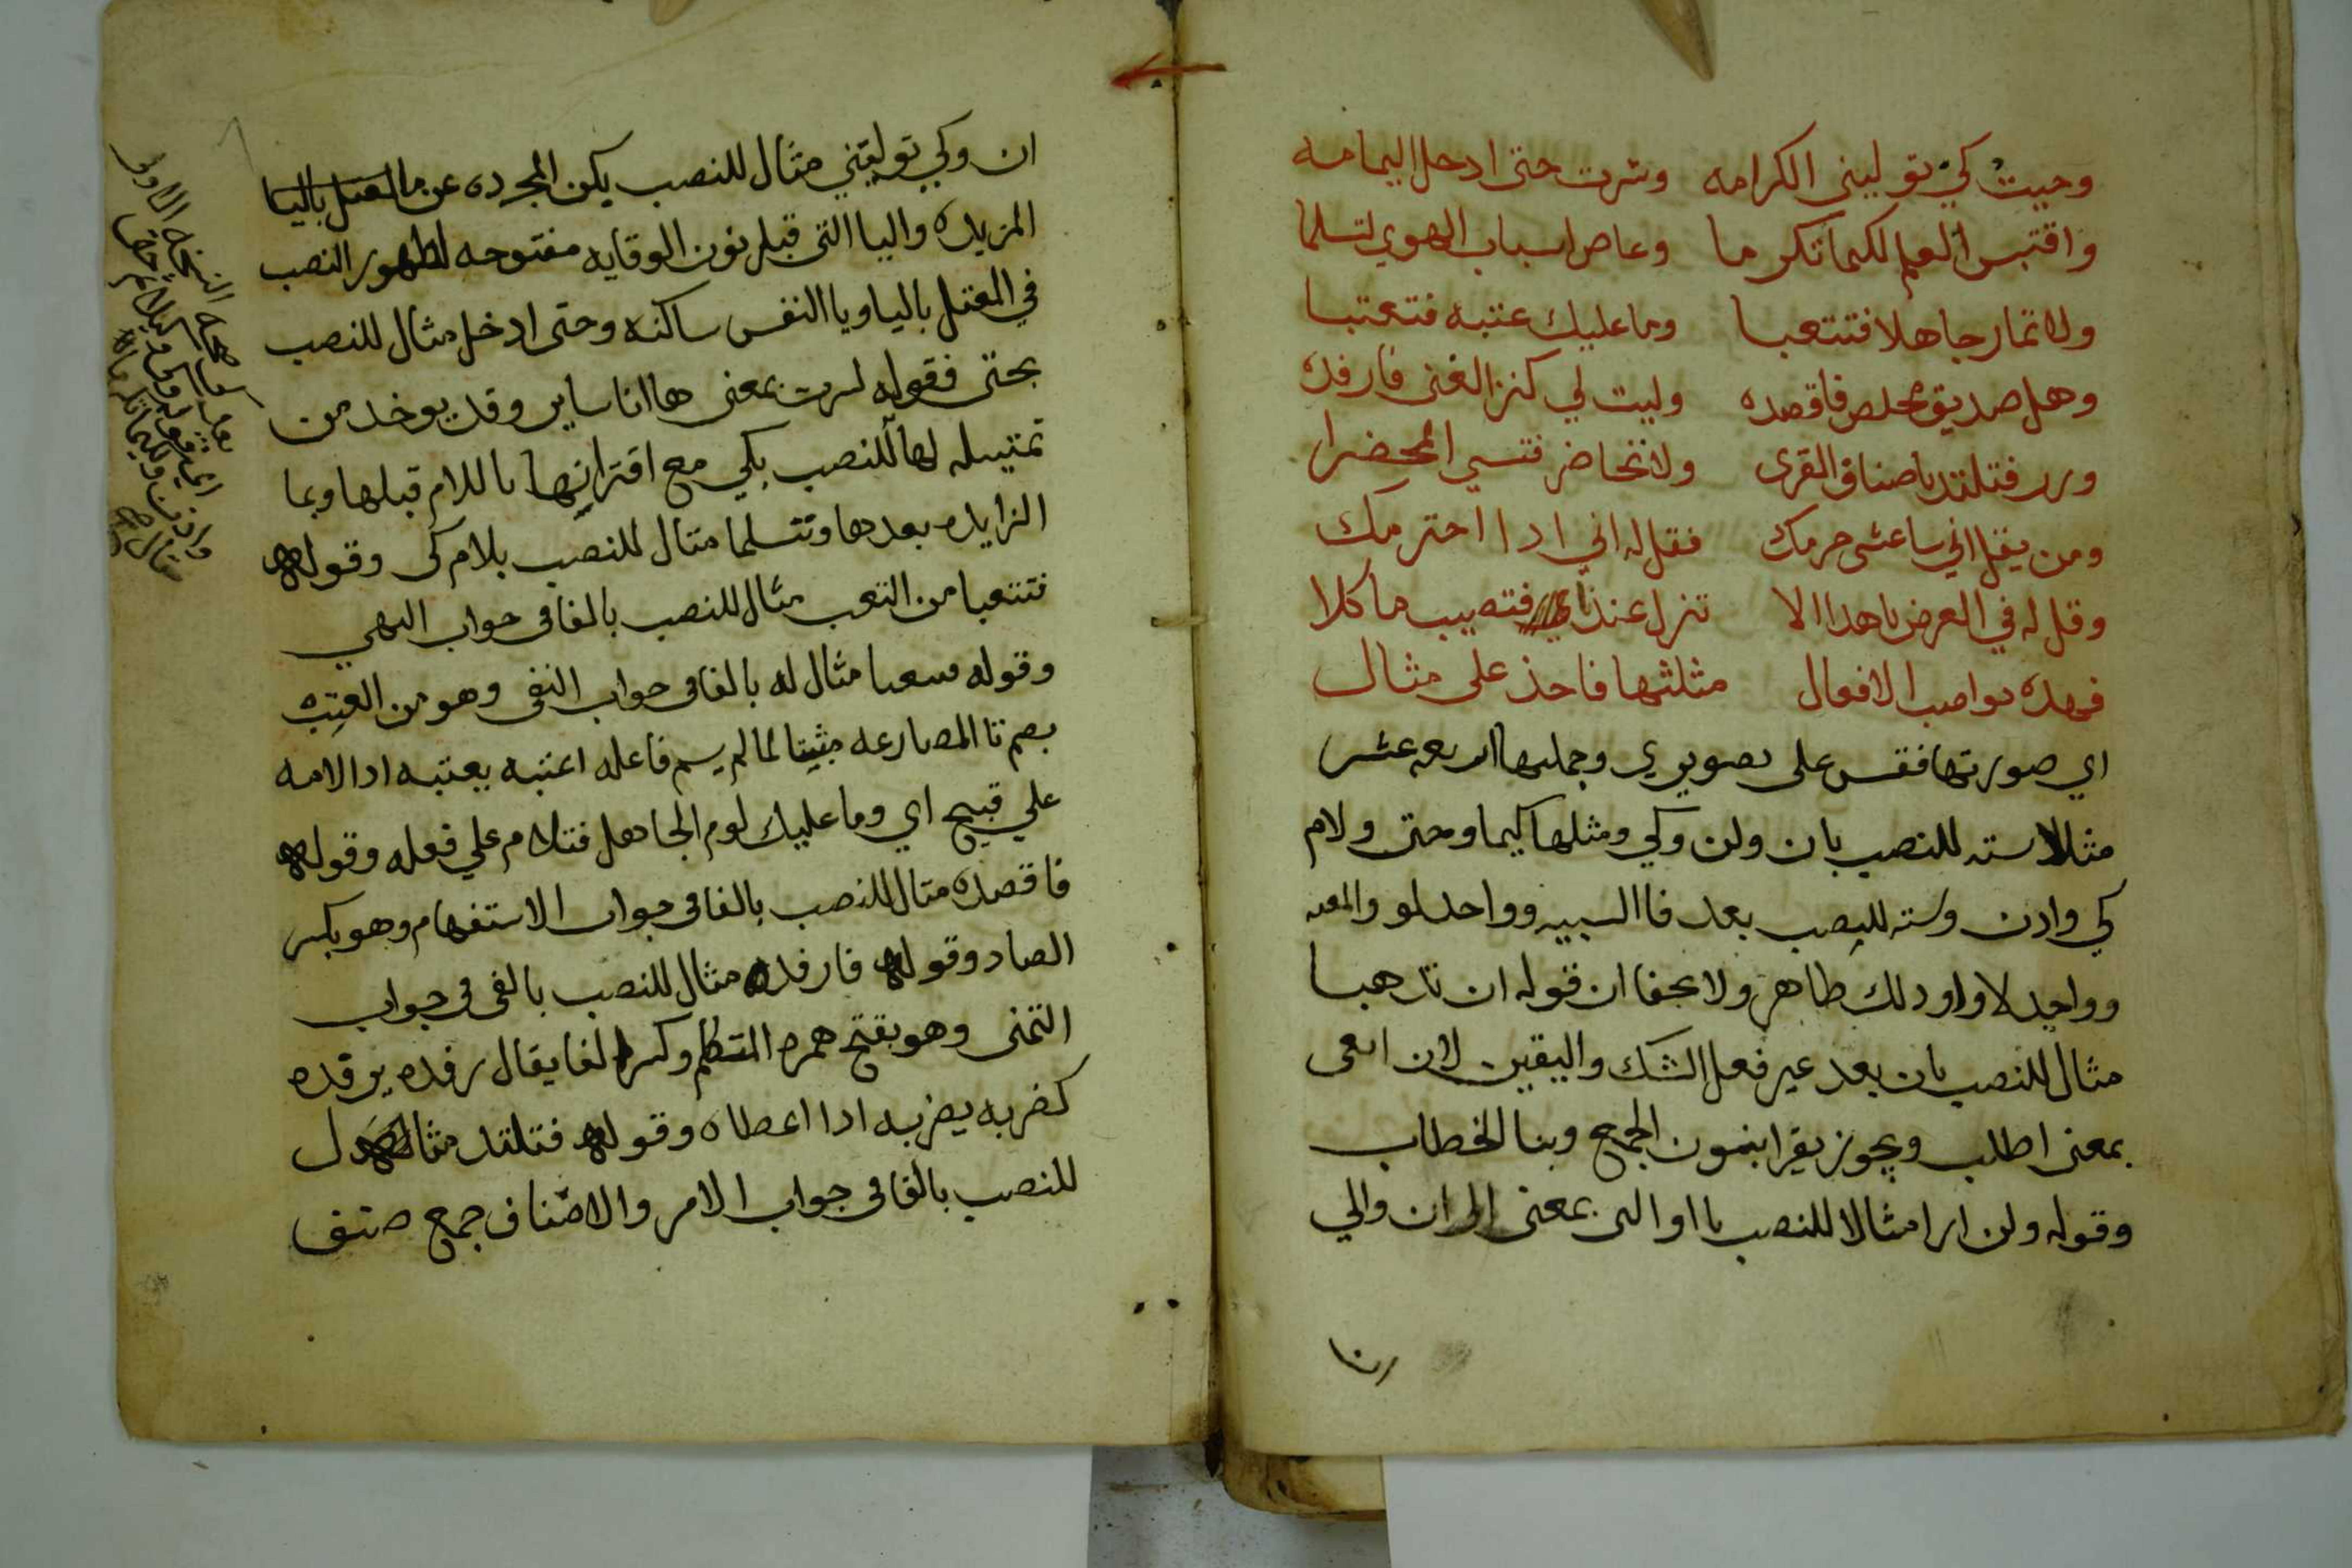 وجيت كي توليني الكرامه وسرت حتى ادخل اليمامه
واقتبس العلم لكيما تكرما وعاص اسباب الهوي لتسلما
ولا تمار جاهلا فتتعبا وما عليك عتبه فتعتبا
وهل صديق مخلص فاقصده وليت لي كنز الغنى فارفده
وزر فتلتد باصناف القرى ولا تحاضر فتسي المحضرا
ومن يقل اني ساغشى حرمك فقل له اني ادا احترمك
وقل له في العرض ياهدا الا تنزل عندي فتصيب ماكلا
فهده نواصب الافعال مثلثها فاحذ على مثال
اي صورتها فقس على تصويري وجملتها اربعه عشر
مثالا سته للنصب بان ولن وكي ومثلها كيما وحتى ولام
كي وادن وسته للنصب بعد فا السببيه وواحد لو والمعيه
وواحد لاو اودلك ظاهر ولا يخفا ان قوله ان تدهبا
مثال للنصب بان بعد غير فعل الشك واليقين لان ابغى
بمعنى اطلب ويجوز يقرا بنون الجمع وبتا الخطاب
وقوله ولن ارا مثالا للنصب با او التي بمعنى الى ان والي
ان وكي توليني مثال للنصب بكي المجرده عن ما المعتل باليا
المزيده واليا التي قبل نون الوقايه مفتوحه لظهور النصب
في المعتل باليا ويا النفس ساكنه وحتى ادخل مثال للنصب
بحتى فقوله سرت بمعنى ها انا ساير وقد يوخد من
تمتيله لها للنصب بكي مع اقترانها باللام قبلها وبما
الزايده بعدها وتتسلما متال للنصب بلام كى وقوله
فتتعبا من التعب مثال للنصب بالفا في جواب النهي
وقوله فتعتبا مثال له بالفا في جواب النفى وهو من العتبه
بضم تا المضارعه مبنيا لما لم يسم فاعله اعتبه يعتبه ادا لامه
علي قبيح اي وما عليك لوم الجاهل فتلام علي فعله وقوله
فاقصده متال للنصب بالفا في جواب الاستفهام وهو بكسر
الصاد وقوله فارفده مثال للنصب بالفي في جواب
التمنى وهو بفتح همزه المتكلم وكسر الفا يقال رفده يرفده
كضربه يضربه ادا اعطاه وقوله فتلتد مثال
للنصب بالفا في جواب الامر والاصناف جمع صنف